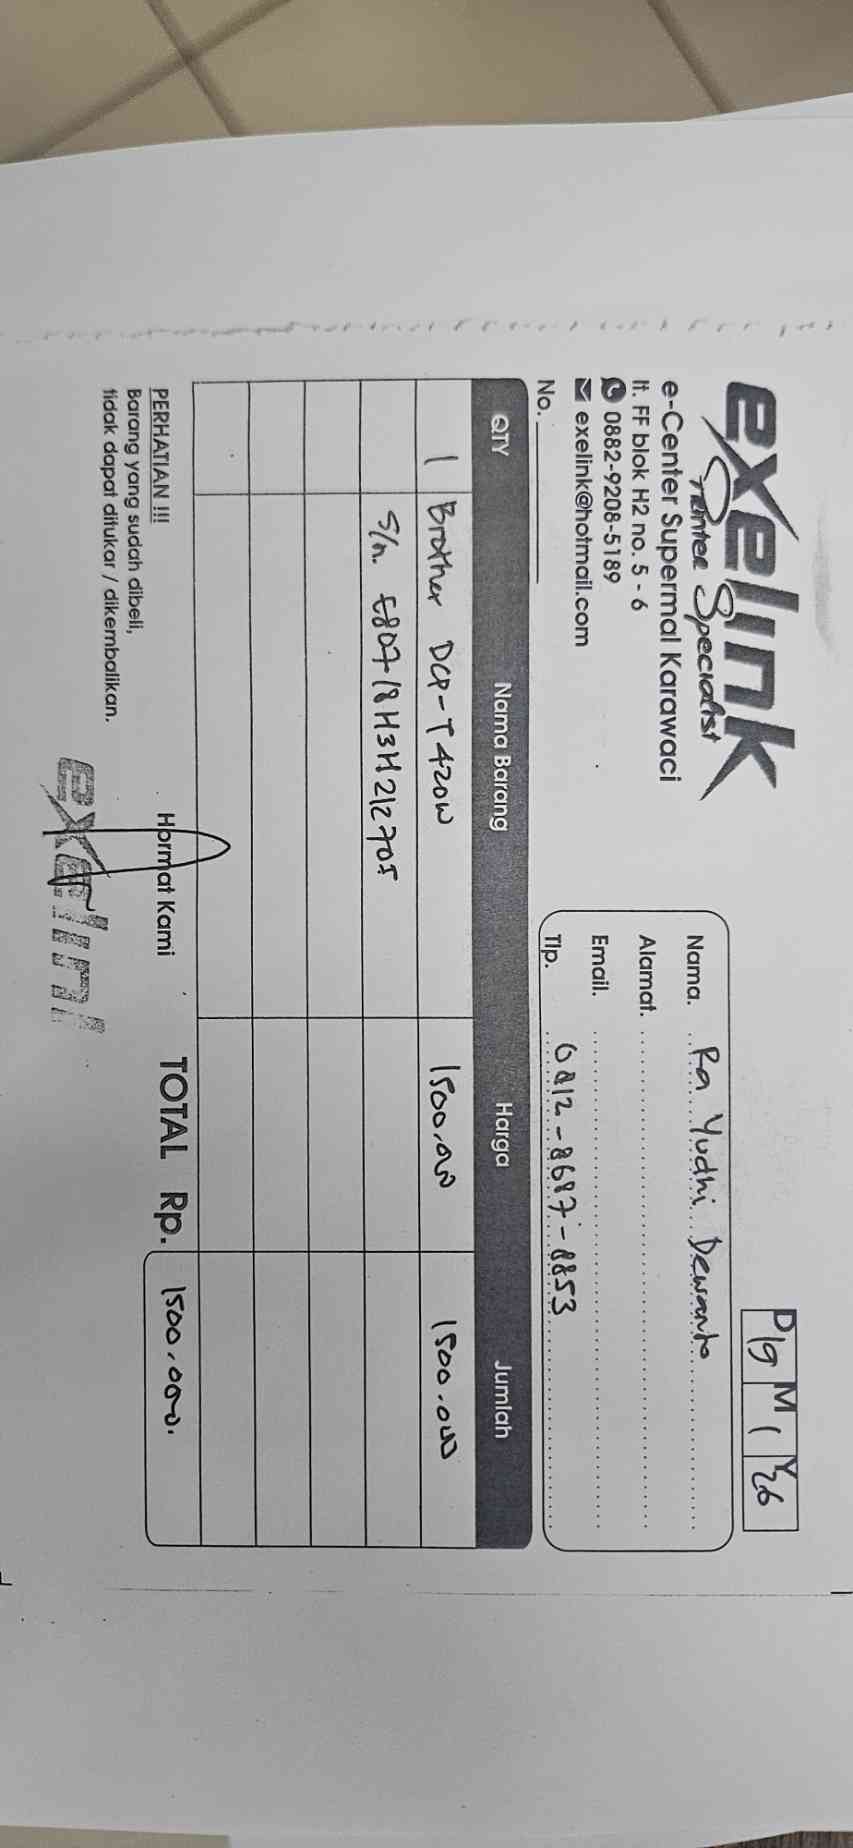 exelink
Printer Specialist
e-Center Supermal Karawaci
lt. FF blok H2 no. 5 - 6
0882-9208-5189
exelink@hotmail.com
No.
D 19 M 1 Y 26
Nama. Ra Yudhi Dewanto
Alamat.
Email.
Tlp. 0812-8687-8853
QTY Nama Barang Harga Jumlah
1 Brother DCP-T420W 1500.000 1500.000
S/n. E80718H3H212705
PERHATIAN !!!
Barang yang sudah dibeli,
tidak dapat ditukar / dikembalikan.
Hormat Kami
exelin
TOTAL Rp. 1500.000.